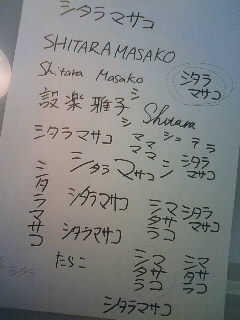 シタラマサコ
SHITARA MASAKO
Shitara Masako
シタラ
マサコ
設楽 雅子
シ
シ
Shitara
シタラマサコ
マ マ
マ マ
シ ラ ラ
シタラマサコ
シ
シタラ
マサコ
シタラマサコ
シタラマサコ
シマ
タサ
ラコ
シタラ
マサコ
シタラマサコ
たらこ
シマ
タサ
ラコ
シマ
タサ
ラコ
シタラ
シタラマサコ